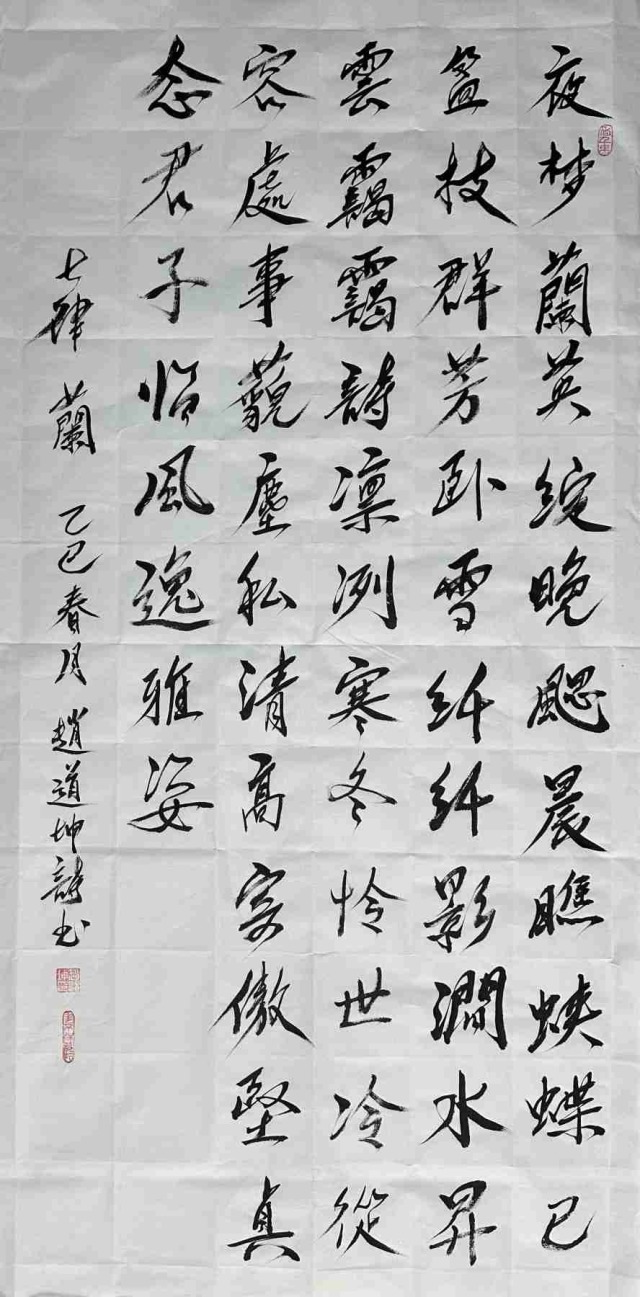 夜梦蘭英綻晚颸晨瞧蛱蝶已
盈枝群芳卧雪纤纤影澗水昇
雲靄靄詩凛冽寒冬怜世冷從
容處事藐塵私清高寄傲堅真
态君子临風逸雅姿
七律 蘭 乙巳春月 趙道坤詩书